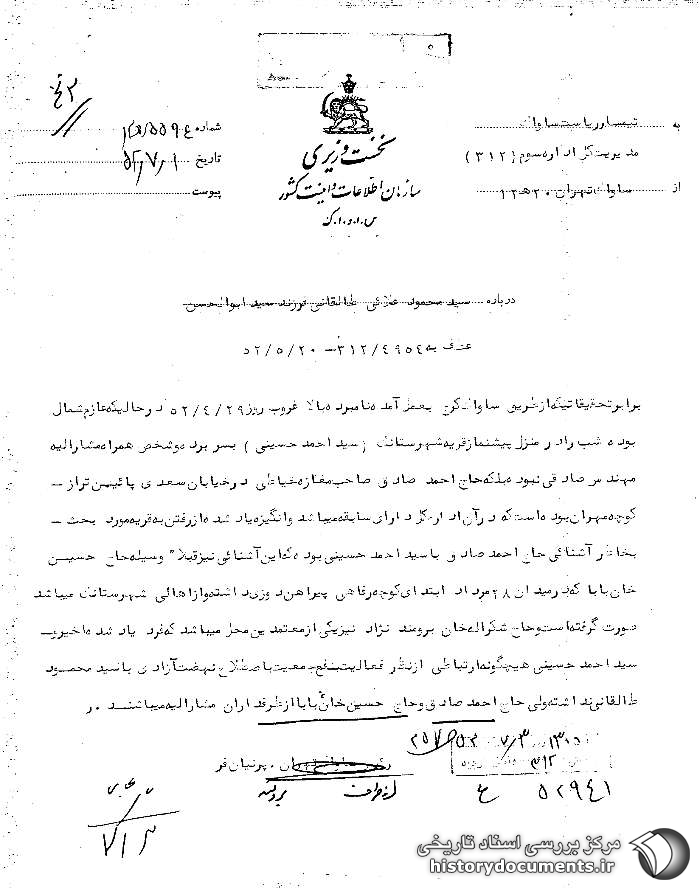 به تیمسار ریاست ساواک
مدیریت کل اداره سوم (۳۱۲)
از ساواک تهران ۲۰ هـ ۱۲
نخست وزیری
سازمان اطلاعات و امنیت کشور
س.ا.و.ا.ک
شماره
تاریخ ۵۲/۷/۱
پیوست
درباره سید محمود علائی طالقانی فرزند سید ابوالحسن
عطف به ۳۱۲/۴۹۵۴ – ۵۲/۵/۲۰
برابر تحقیقاتیکه از طریق ساواک کرج بعمل آمده نامبرده بالا غروب روز ۵۲/۴/۲۹ در حالیکه عازم شمال
بوده شب را در منزل پیشنماز قریه شهرستانک (سید احمد حسینی) بسر برده و شخص همراه مشارالیه
مهندس صادقی نبوده بلکه حاج احمد صادق صاحب مغازه خیاطی در خیابان سعدی پائین تر از –
کوچه مهران بوده است که در آن اداره کل دارای سابقه میباشد و انگیزه یاد شده از رفتن به قریه مورد بحث –
بخاطر آشنائی حاج احمد صادق با سید احمد حسینی بوده که این آشنائی نیز قبلا" وسیله حاج حسین
خان بابا که در میدان ۲۸ مرداد ابتدای کوچه رفاهی پیراهن دوزی داشته و از اهالی شهرستانک میباشد
صورت گرفته است و حاج شکراله خان برومند نژاد نیز یکی از معتمدین محل میباشد که فرد یاد شده اخیر و –
سید احمد حسینی هیچگونه ارتباطی از نظر فعالیت بنفع جمعیت باصطلاح نهضت آزادی با سید محمود
طالقانی نداشته ولی حاج احمد صادق و حاج حسین خان بابا از طرفداران مشارالیه میباشند. ر
پرنیان فر
از طرف
۵۲۹۴۱
۷/۳
مرکز بررسی اسناد تاریخی
historydocuments.ir